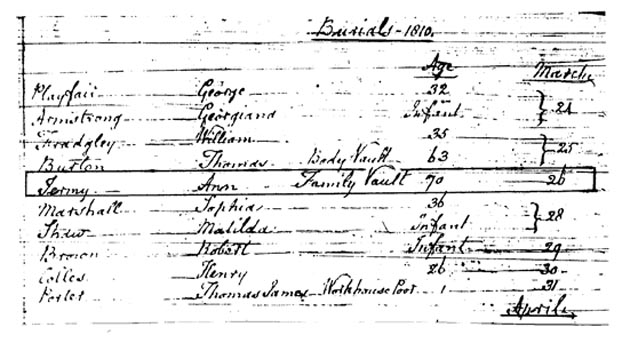 Burials - 1810.
Age March
Playfair George 32
Armstrong Georgiana Infant } 24
Fradgley William 35
Burton Thomas Body Vault 63 } 25
Jermy Ann Family Vault 70 26
Marshall Sophia 36
Shaw Matilda Infant } 28
Brown Robert Infant 29
Colles Henry 26 30
Porter Thomas James Workhouse Poor 1 31
April